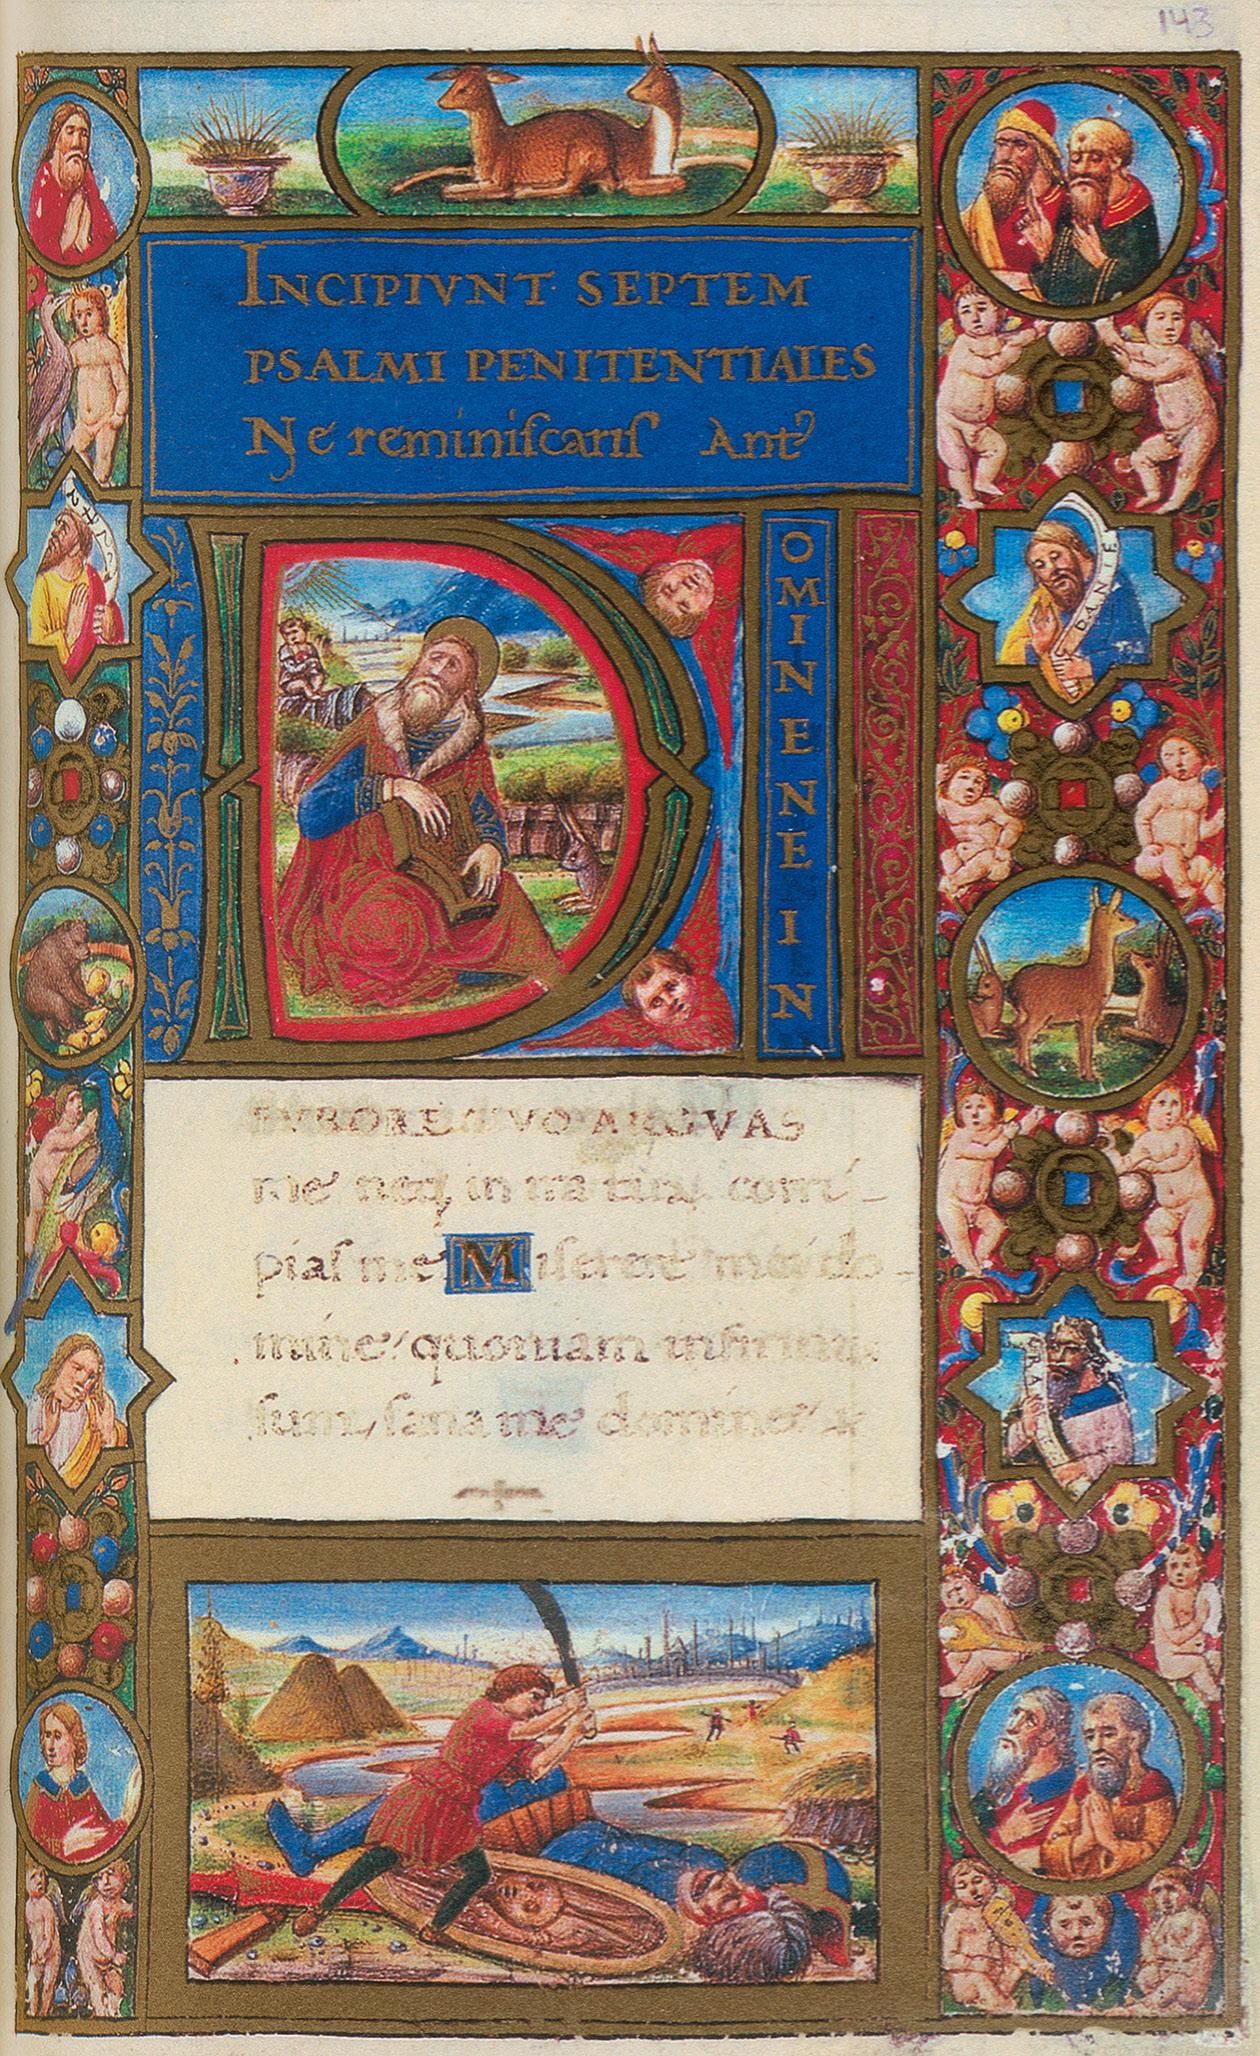 143
INCIPIVNT SEPTEM
PSALMI PENITENTIALES
Ne reminiſcariſ Ant
DOMINE NE IN
FVRORE TVO ARGVAS
me neq; in ira tua corri-
piaſ me Miſerere mei do-
mine quoniam infirmus
ſum, ſana me domine
DANTE